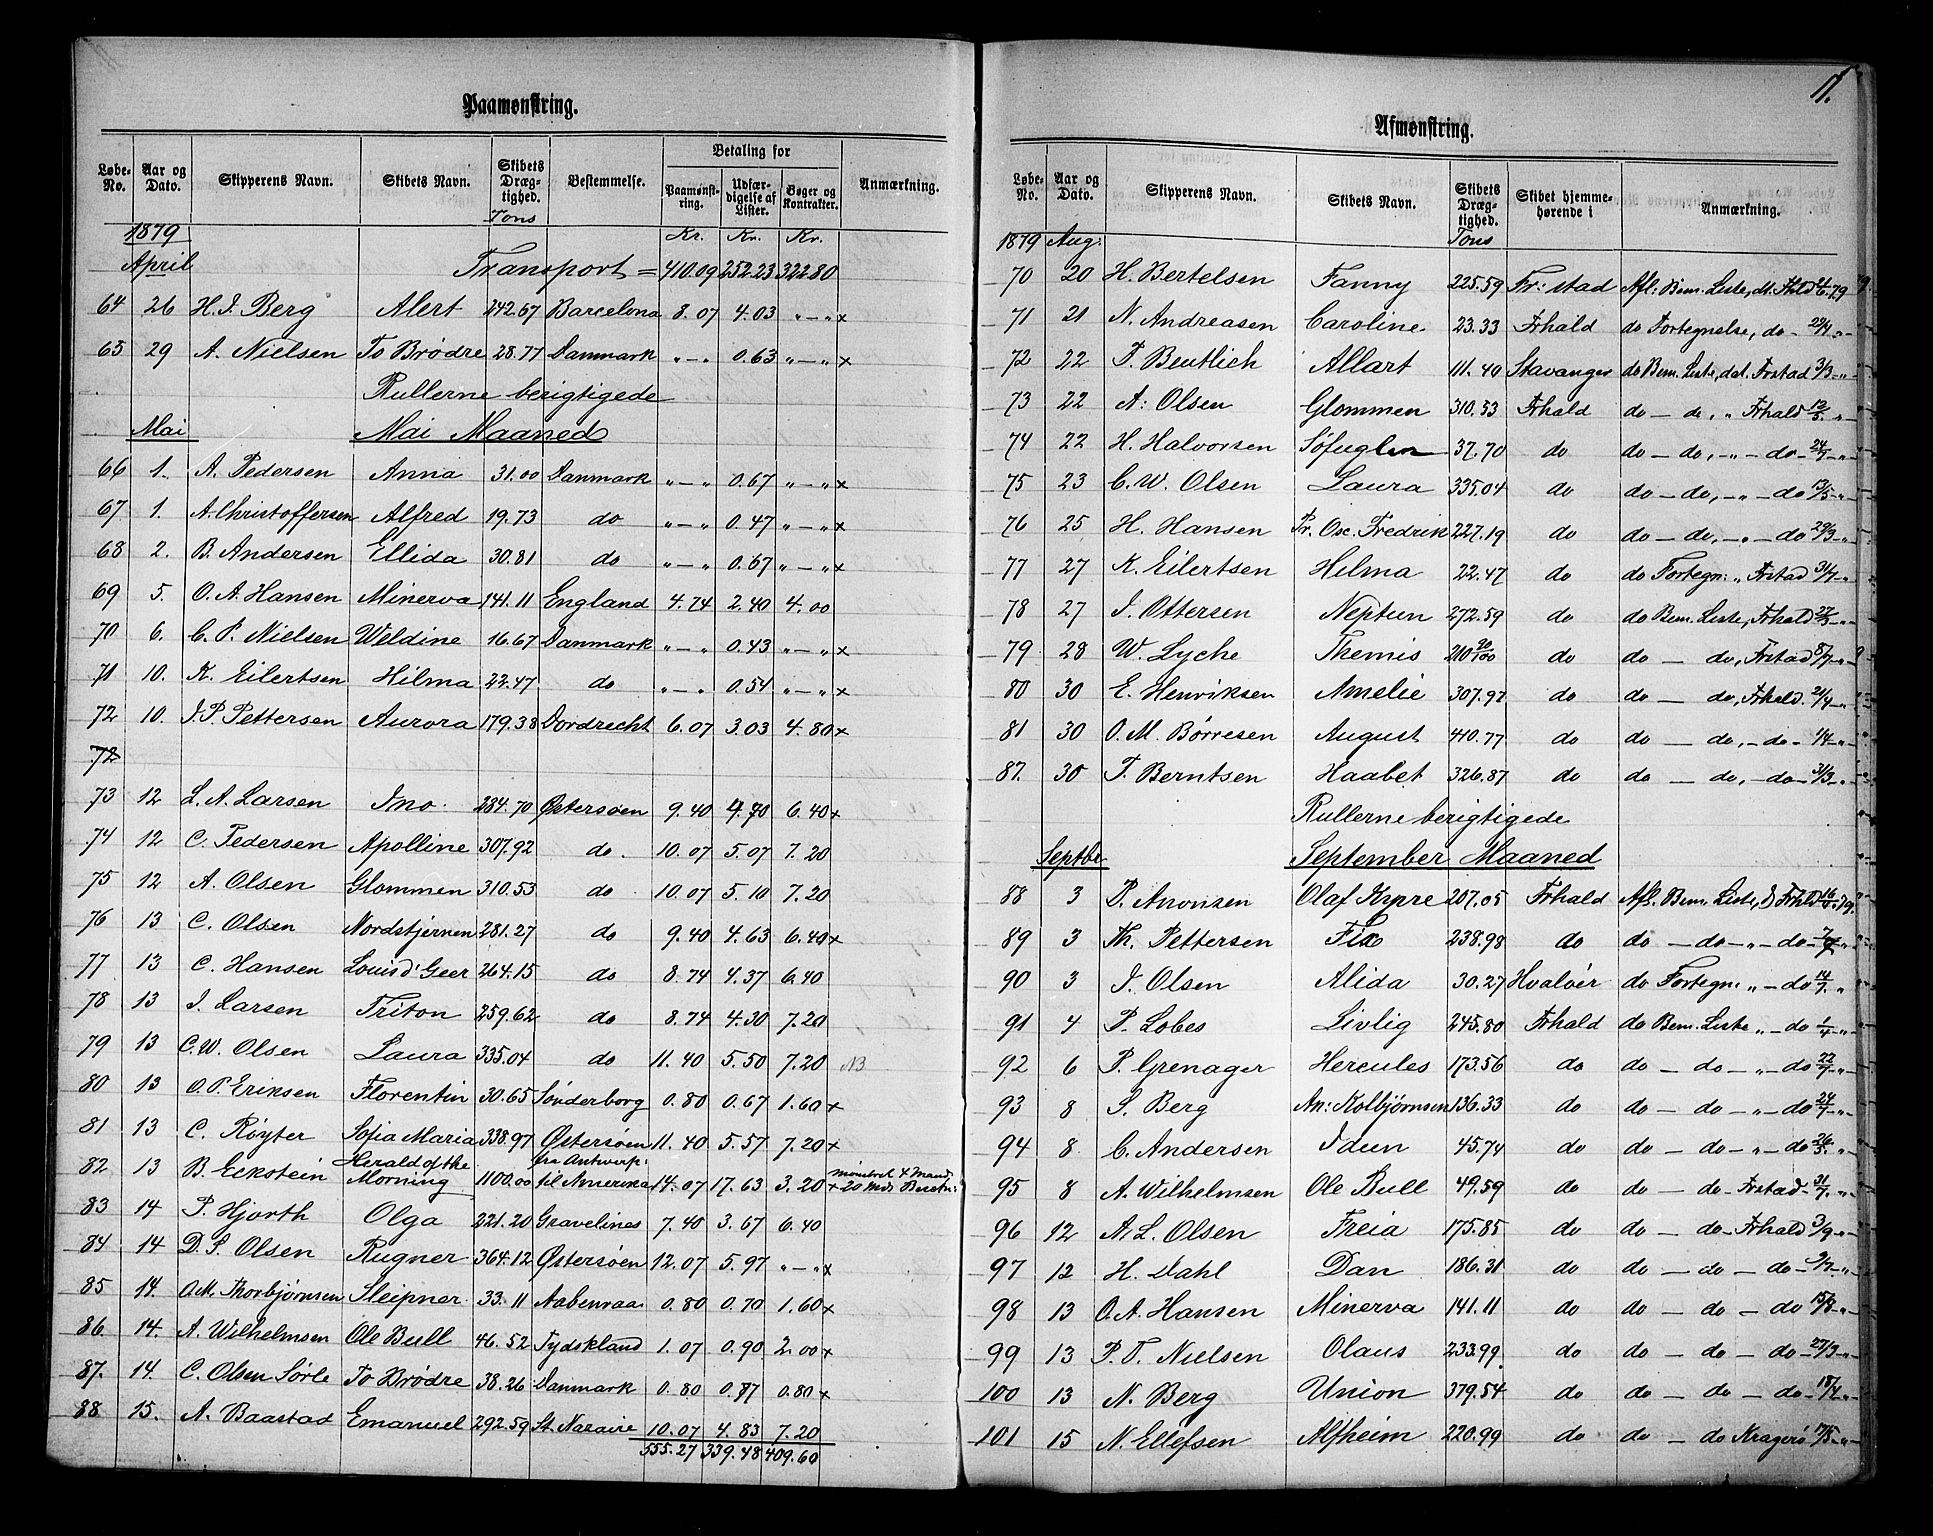 Paamønstring.
Løbe-No. Aar og Dato. Skipperens Navn. Skibets Navn. Skibets Dræg-tighed. Bestemmelse. Betaling for Paamønst-ring. Udfær-digelse af Lister. Bøger og Kontrakter. Anmærkning.
1879 Tons Kr. Kr. Kr.
April Transport = 410.09 252.23 322.80
64 26 H. J. Berg Alert 242.67 Barcelona 8.07 4.03 „ — „ x
65 29 A. Nielsen To Brødre 28.77 Danmark „ — „ 0.63 „ — „ x
Rullerne berigtigede
Mai Mai Maaned
66 1. A. Pedersen Anna 31.00 Danmark „ — „ 0.67 „ — „ x
67 1. A. Christoffersen Alfred 19.73 do „ — „ 0.47 „ — „ x
68 2. B. Andersen Ellida 30.81 do „ — „ 0.67 „ — „ x
69 5. O. A. Hansen Minerva 141.11 England 4.74 2.40 4.00
70 6. C. P. Nielsen Weldine 16.67 Danmark „ — „ 0.43 „ — „ x
71 10. K. Eilertsen Hilma 22.47 do „ — „ 0.54 „ — „ x
72 10. J. P. Pettersen Aurora 179.38 Dordrecht 6.07 3.03 4.80 x
72
73 12 L. A. Larsen Ino 284.70 Østersøen 9.40 4.70 6.40 x
74 12 C. Pedersen Apolline 307.92 do. 10.07 5.07 7.20
75 12 A. Olsen Glommen 310.53 do 10.07 5.10 7.20
76 13 C. Olsen Nordstjernen 281.27 do 9.40 4.63 6.40 x
77 13 C. Hansen Louis d' Geer 264.15 do 8.74 4.37 6.40
78 13 J. Larsen Triton 259.62 do 8.74 4.30 7.20
79 13 C. W. Olsen Laura 335.04 do 11.40 5.50 7.20 NB
80 13 O. P. Eriksen Florentin 30.65 Sønderborg 0.80 0.67 1.60 x
81 13 C. Røyter Sofia Maria 338.97 Østersøen 11.40 5.57 7.20 x
82 13 B. Eckstein Herald of the Morning 1100.00 fra Antwerp: til Amerika 14.07 17.63 3.20 mønstret 4 Mand x 20 Mds
83 14 P. Hjorth Olga 221.20 Gravelines 7.40 3.67 6.40
84 14 D. S. Olsen Rugner 364.12 Østersøen 12.07 5.97 „ — „ x
85 14. O. M. Thorbjørnsen Sleipner 33.11 Aabenraa 0.80 0.70 1.60 x
86 14. A. Wilhelmsen Ole Bull 46.52 Tydskland 1.07 0.90 2.00 x
87. 14. C. Olsen Sørle To Brødre 38.26 Danmark 0.80 0.77 0.80 x
88 15. A. Baastad Emanuel 292.59 St. Nazaire 10.07 4.83 7.20
555.27 339.48 409.60
11.
Afmønstring.
Løbe-No. Aar og Dato. Skipperens Navn. Skibets Navn. Skibets Dræg-tighed. Skibet hjemme-hørende i Anmærkning.
1879 Aug: Tons
70 20 H. Bertelsen Fanny 225.59 Fr:stad Afl: Bem. Liste, dt. Fhld
71 21 N. Andreasen Caroline 23.33 Frhald do Fortegnelse, do — 29/4 „
72 22 P. Bentlich Allart 111.40 Stavanger do Bem. Liste, dat. Frstad 3/3 „
73 22 A. Olsen Glommen 310.53 Frhald do — do, „ Frhald 12/5 „
74 22 H. Halvorsen Søfuglen 37.70 do do — do, — „ — do — 24/7 „
75 23 C. W. Olsen Laura 335.04 do do — do, — „ — do 13/5 „
76 25 H. Hansen Pr. Osc. Fredrik 227.19 do do — do, — „ — do 29/3 „
77 27 K. Eilertsen Hilma 22.47 do do Fortegn: „ Frstad 31/7 „
78 27 J. Ottersen Neptun 272.59 do do Bem. Liste, Frhald 27/3 „
79 28 W. Lyche Themis 210 90/100 do do — do, Frstad 8/7 „
80 30 E. Henriksen Amelie 307.97 do do — do, Frhald. 21/4 „
81 30 O. M. Børresen August 410.77 do do — do, — do — 1/4 „
87. 30 T. Berntsen Haabet 326.87 do do — do, — do — 31/3 „
Rullerne berigtigede
Septbr September Maaned
88 3 P. Aronsen Olaf Kyrre 207.05 Frhald Afl. Bem. Liste, D Frhld 79.
89 3 Th. Pettersen Fix 238.98 do do — do — „ — do
90 3 J. Olsen Alida 30.27 Hvaløer do Fortegn: „ — do 14/7. „
91 4 P. Lobes Livlig 245.80 Frhald do Bem. Liste „ — do 1/4 „
92 6 P. Grenager Hercules 173.56 do do — do — „ — do 22/7 „
93 8 S. Berg An: Kolbjørnsen 136.33 do do — do — „ — do 24/7 „
94 8 C. Andersen Idun 45.74 do do — do — „ — do 26/5. „
95 8 A. Wilhelmsen Ole Bull 49.59 do do — do — Frstad 31/7. „
96 12 A. L. Olsen Freia 175.85 do do — do — Frhald 3/9 „
97 12 H. Dahl Dan 186.31 do do — do — do — 9/7. „
98 13 O. A. Hansen Minerva 141.11 do do — do — do 15/8 „
99 13 P. T. Nielsen Olaus 233.99 do do — do — do 27/3 „
100 13 N. Berg Union 379.54 do do — do — do 18/4 „
101 15 N. Ellefsen Alfheim 220.99 do do — do Kragerø 17/5 „